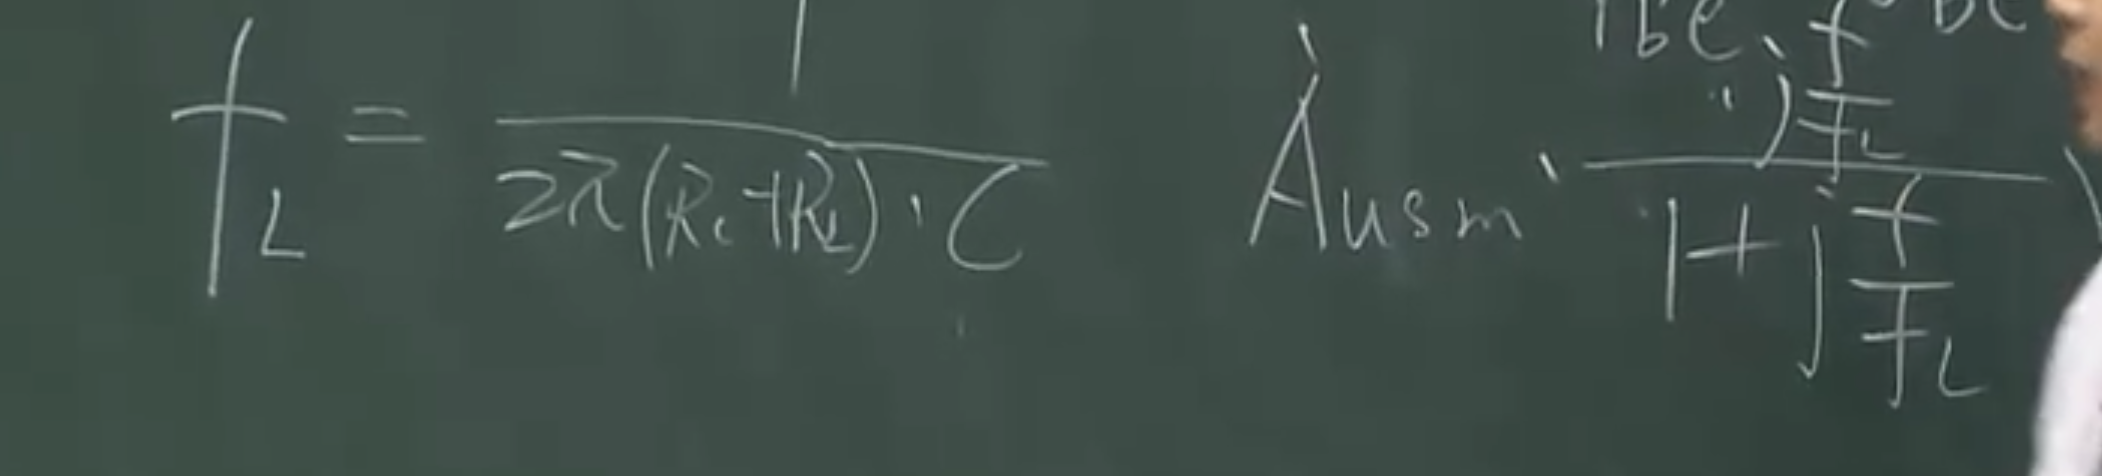 f_L = 1 / (2π(R_c+R_L)·C)
Ȧusm · (j f/f_L) / (1+j f/f_L)